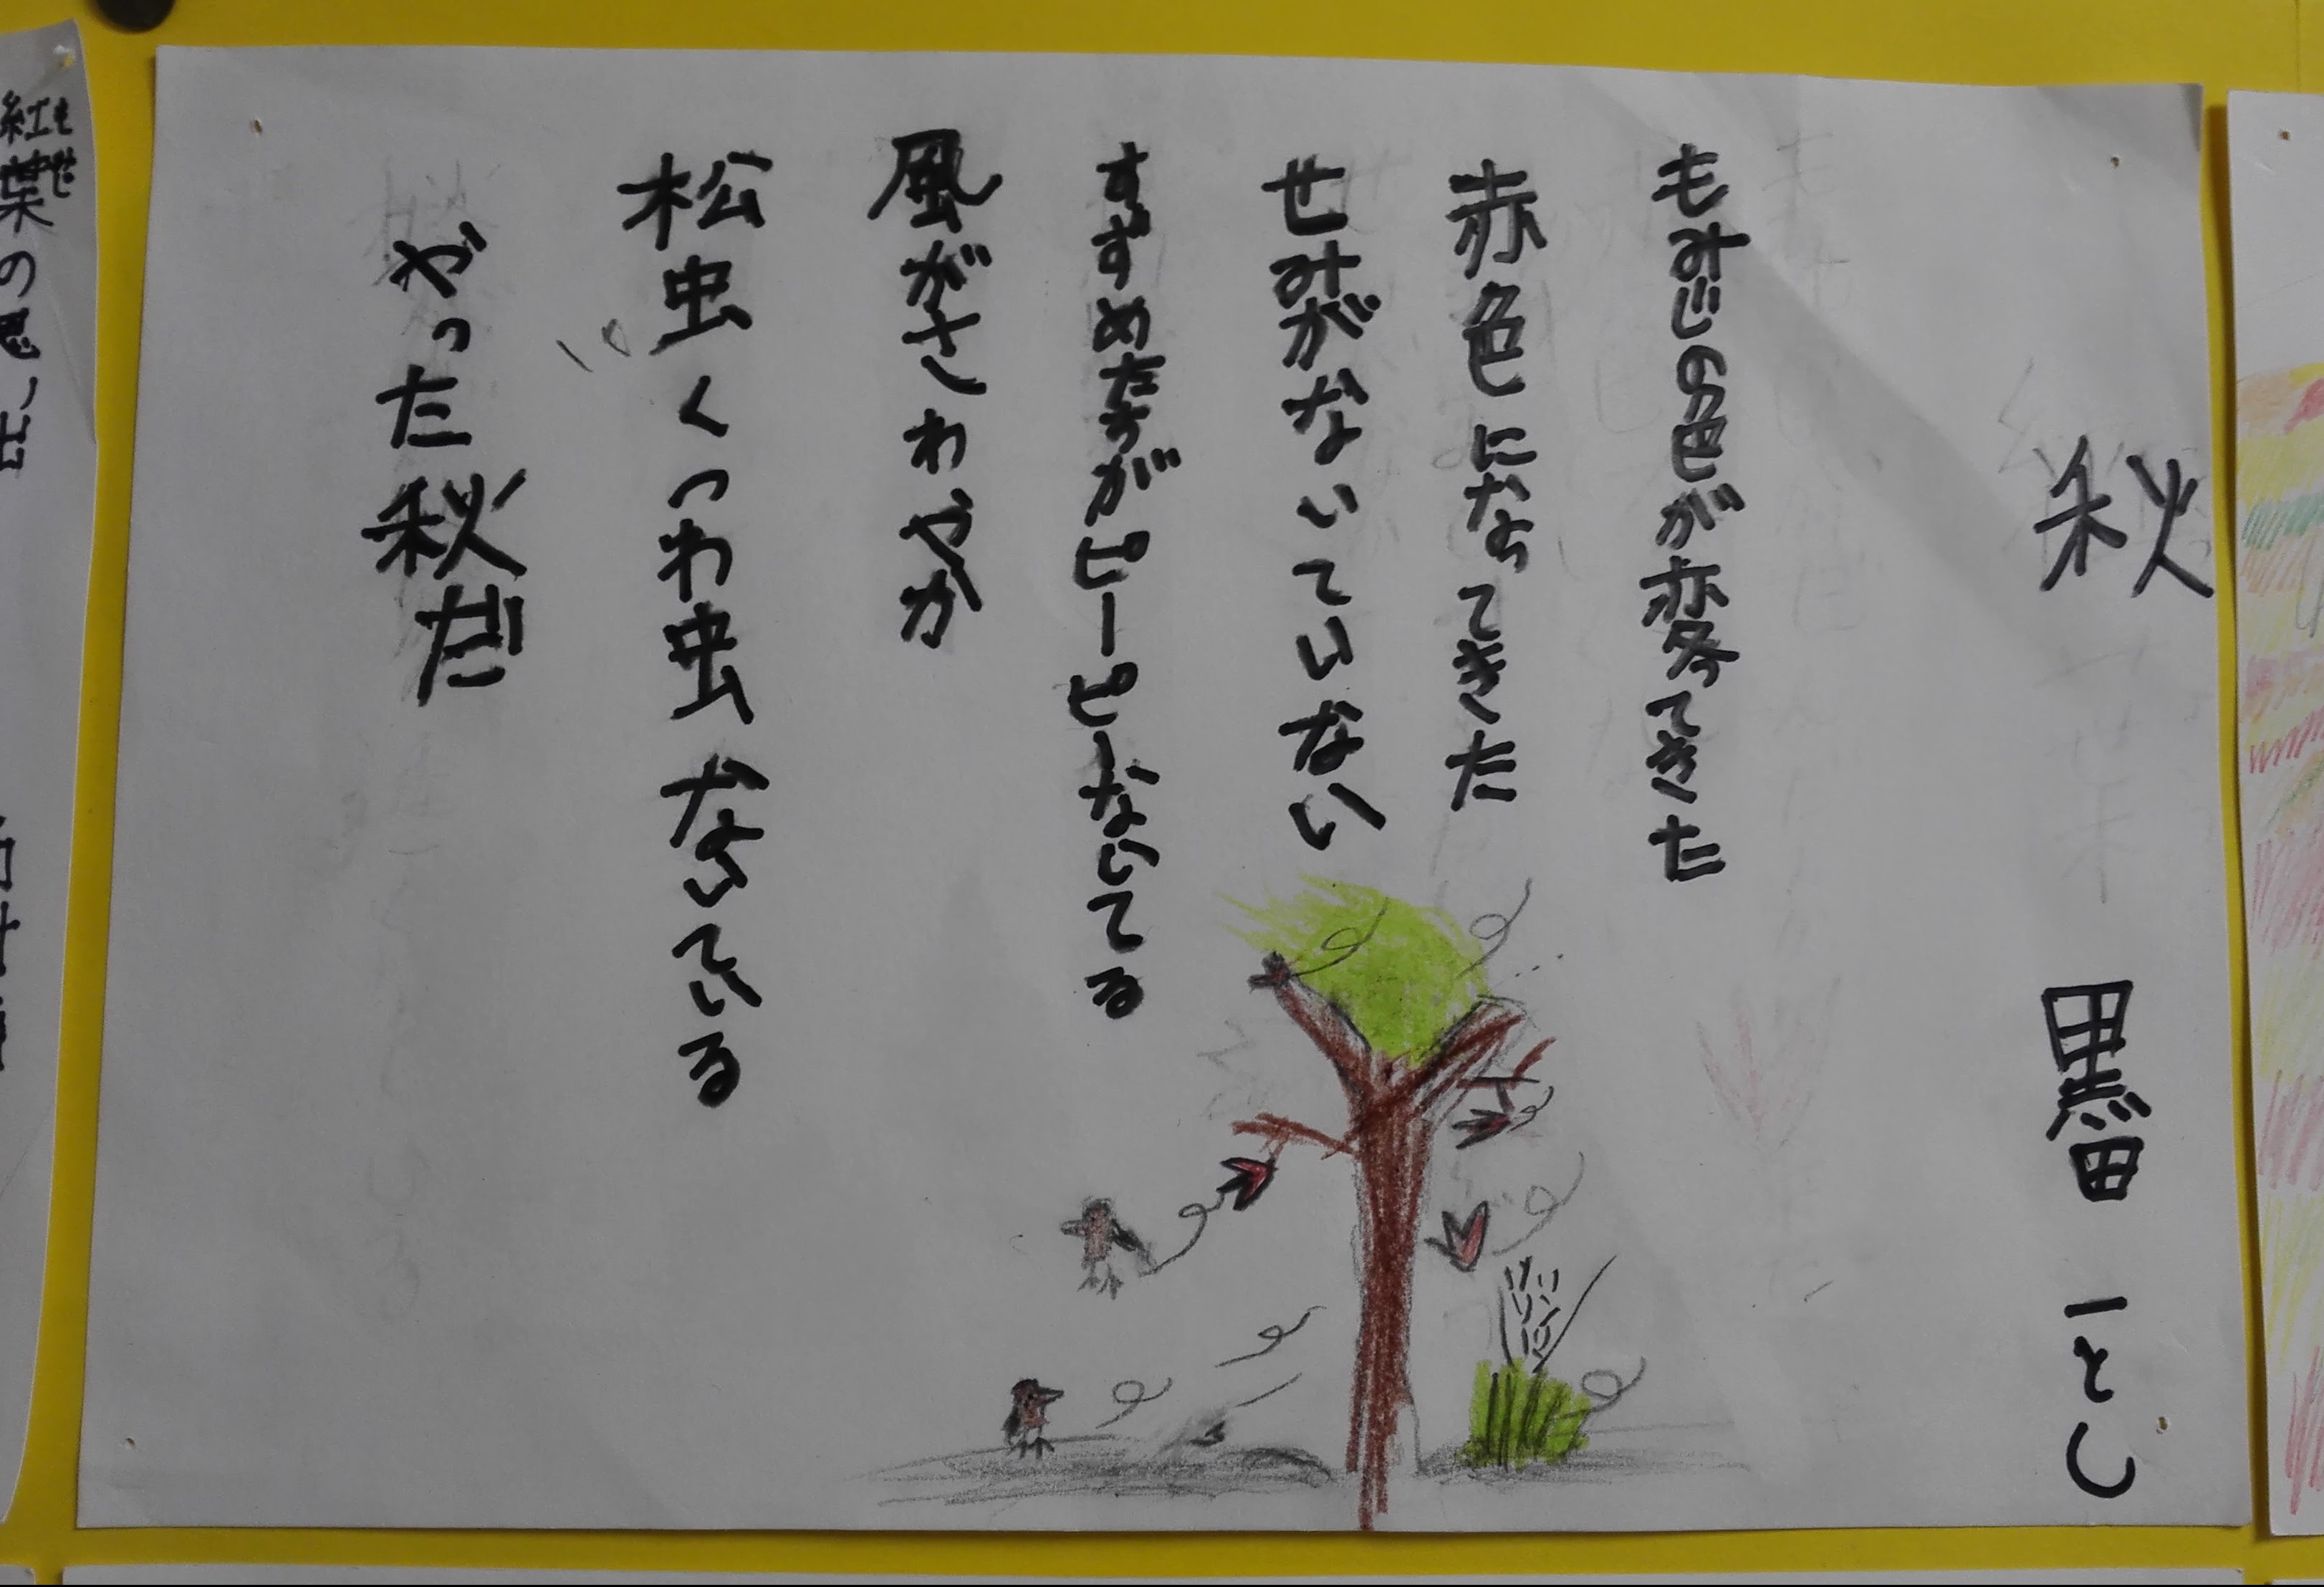 秋　黒田一とし
もみじの色が変ってきた
赤色になってきた
せみがないていない
すずめたちがピーピーないてる
風がさわやか
松虫くつわ虫ないている
やった秋だ
紅葉の思い出
もみじ